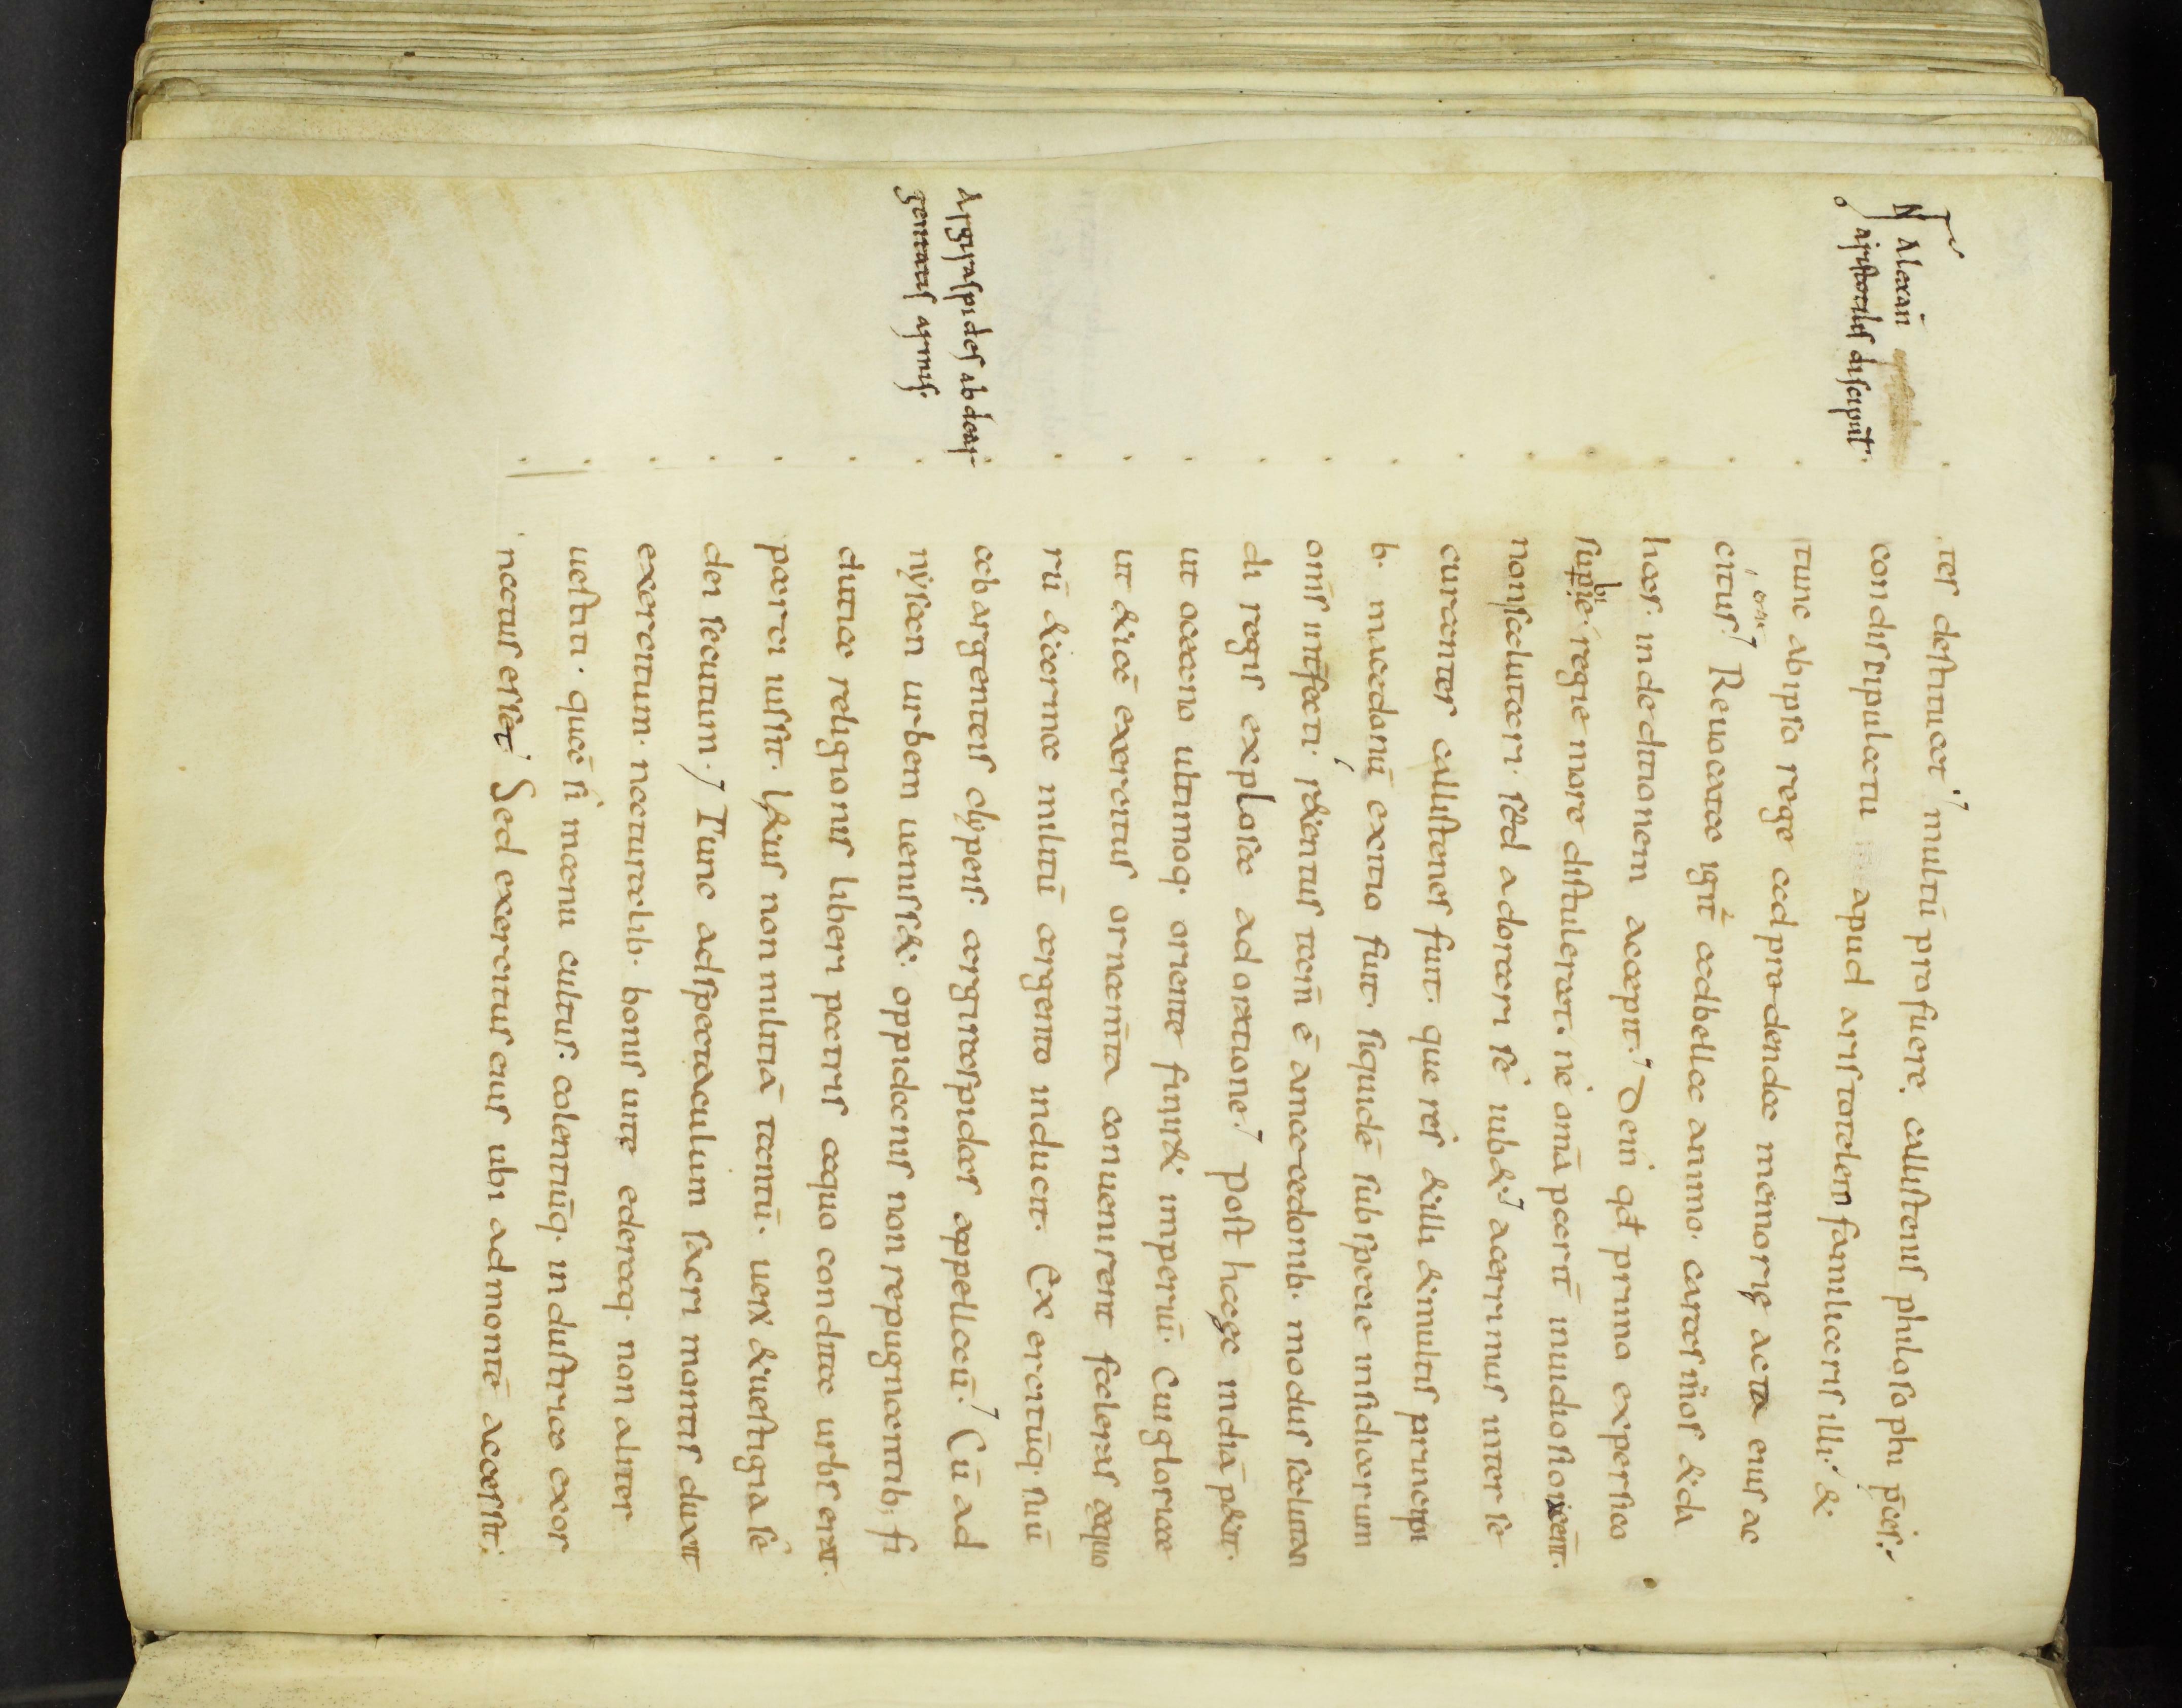 Alexan̄
aristotelis discipul̄.
tes destituat; multū profuere. callistenis philosophi p̄ces:
condiscipulatu apud aristotelem familiaris illi; &
tunc ab ipso rege ad prodendae memorię acta eius ac
citus; Reuocato igit̄ ad bella animo. carasm̄os & da
has. in deditionem accepit; Dein qd̄ primo ex persico
supbie. regie more distulerat. ne om̄a parit̄ inuidiosiora ēēnt.
non salutari. sed adorari se iub&; acerrimus inter re
curantes callistenes fuit. que res & illi & multis principi
b. macedonū exitio fuit. siquidē sub specie insidiarum
om̄s int̄fecti. r&entus tam̄ ē a macedonib. modus salutan
di regis explosa adoratione; Post haec indiā p&it.
ut oceano ultimoq. oriente finir& imperiū. Cui gloriae
ut & iā exercitus ornam̄ta conuenirent faleras equo
rū & arma militū argento inducit. Exercitūq. suū
ab argenteis clypeis. argiraspidas appellauit; Cū ad
nysam urbem uenisset. oppidanis non repugnantib; fi
ducia religionis liberi patris a quo condita urbs erat.
parci iussit. l&us non militiā tantū. uerū & uestigia se
dei secutum; Tunc ad spectaculum sacri montis duxit
exercitum. naturalib. bonis uite ederaq. non aliter
uestiti. quā si manu cultus. colentiūq. industria exor
natus esset; Sed exercitus eius ubi ad montē accessit;
Argiraspides ab dear
gentatis armis.